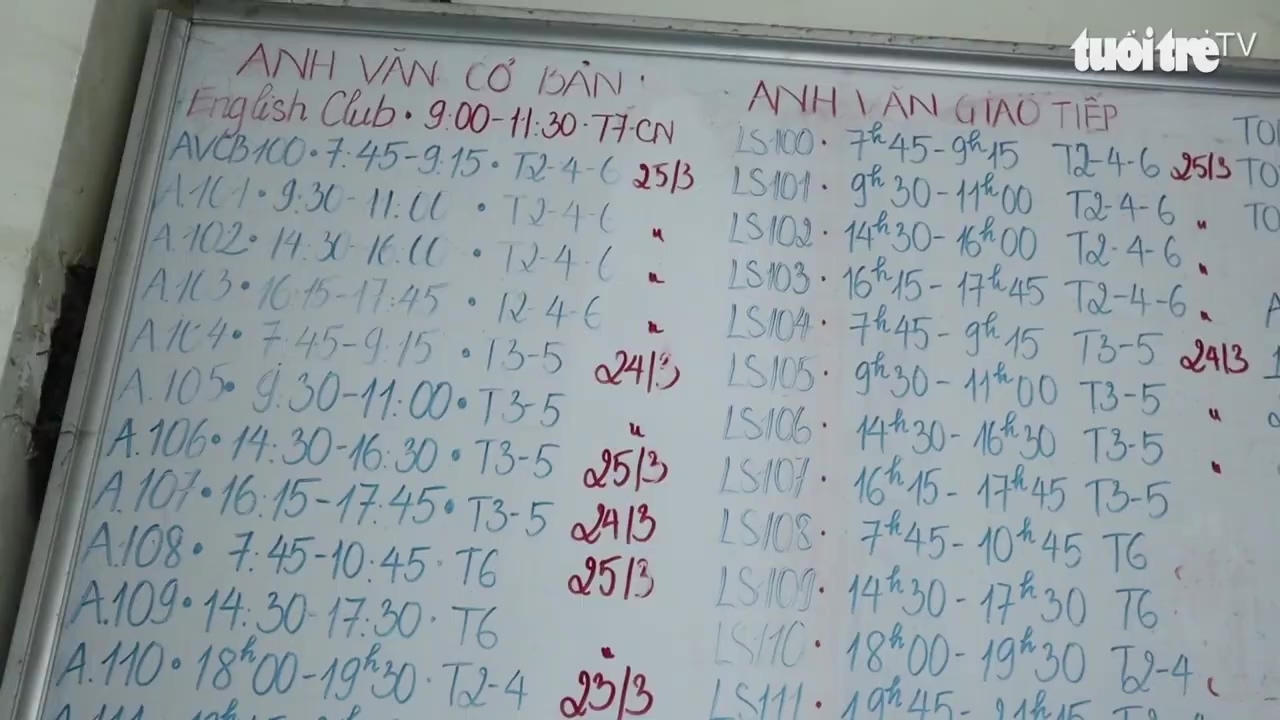 tuoitre TV
ANH VĂN CƠ BẢN
English Club • 9:00-11:30 • T7-CN
AVCB100 • 7:45-9:15 • T2-4-6 25/3
A101 • 9:30-11:00 • T2-4-6 "
A.102 • 14:30-16:00 • T2-4-6 "
A103 • 16:15-17:45 • T2-4-6 "
A104 • 7:45-9:15 • T3-5 24/3
A.105 • 9:30-11:00 • T3-5 "
A.106 • 14:30-16:30 • T3-5 25/3
A.107 • 16:15-17:45 • T3-5 24/3
A.108 • 7:45-10:45 • T6 25/3
A.109 • 14:30-17:30 • T6 "
A.110 • 18h00-19h30 • T2-4 23/3
ANH VĂN GIAO TIẾP
LS100 • 7h45-9h15 T2-4-6 25/3
LS101 • 9h30-11h00 T2-4-6 "
LS102 • 14h30-16h00 T2-4-6 "
LS103 • 16h15-17h45 T2-4-6 "
LS104 • 7h45-9h15 T3-5 24/3
LS105 • 9h30-11h00 T3-5 "
LS106 • 14h30-16h30 T3-5 "
LS107 • 16h15-17h45 T3-5
LS108 • 7h45-10h45 T6
LS109 • 14h30-17h30 T6
LS110 • 18h00-19h30 T2-4
LS111 • 19h45-21h15 T2-4